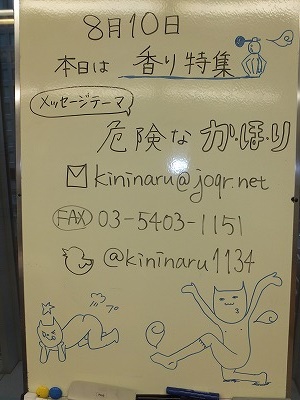 8月10日
本日は 香り特集
メッセージテーマ
危険な か・ほ・り
kininaru@joqr.net
FAX 03-5403-1151
@kininaru1134
プ
3